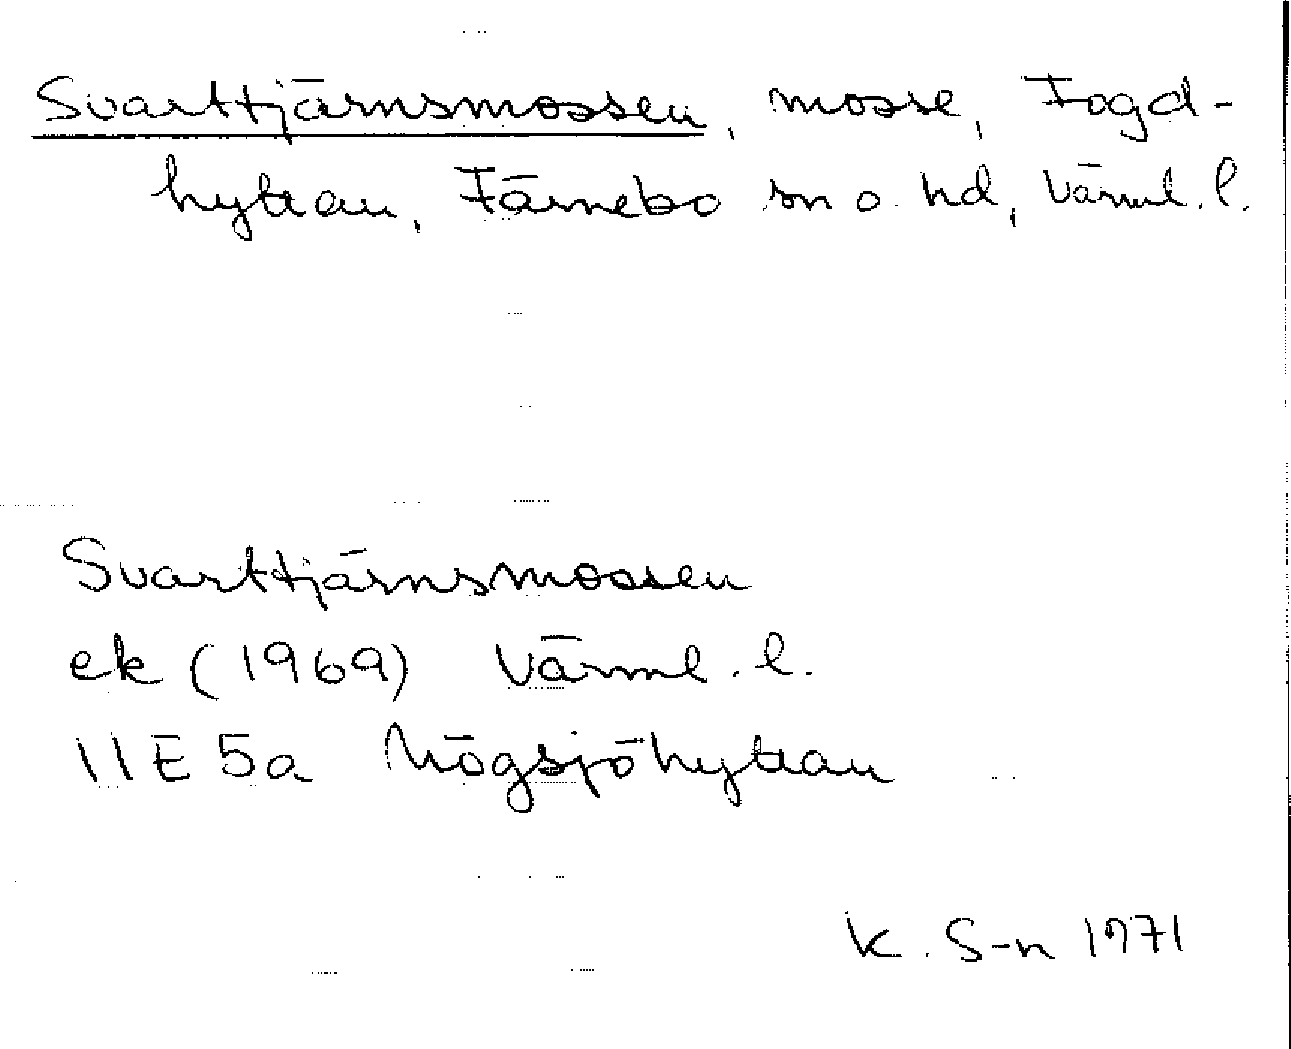 Svarttjärnsmossen, mosse, Fogd-
hyttan, Färnebo sn o. hd, Värml. l.
Svarttjärnsmossen
ek (1969) Värml. l.
11E 5a Högsjöhyttan
K. S-n 1971